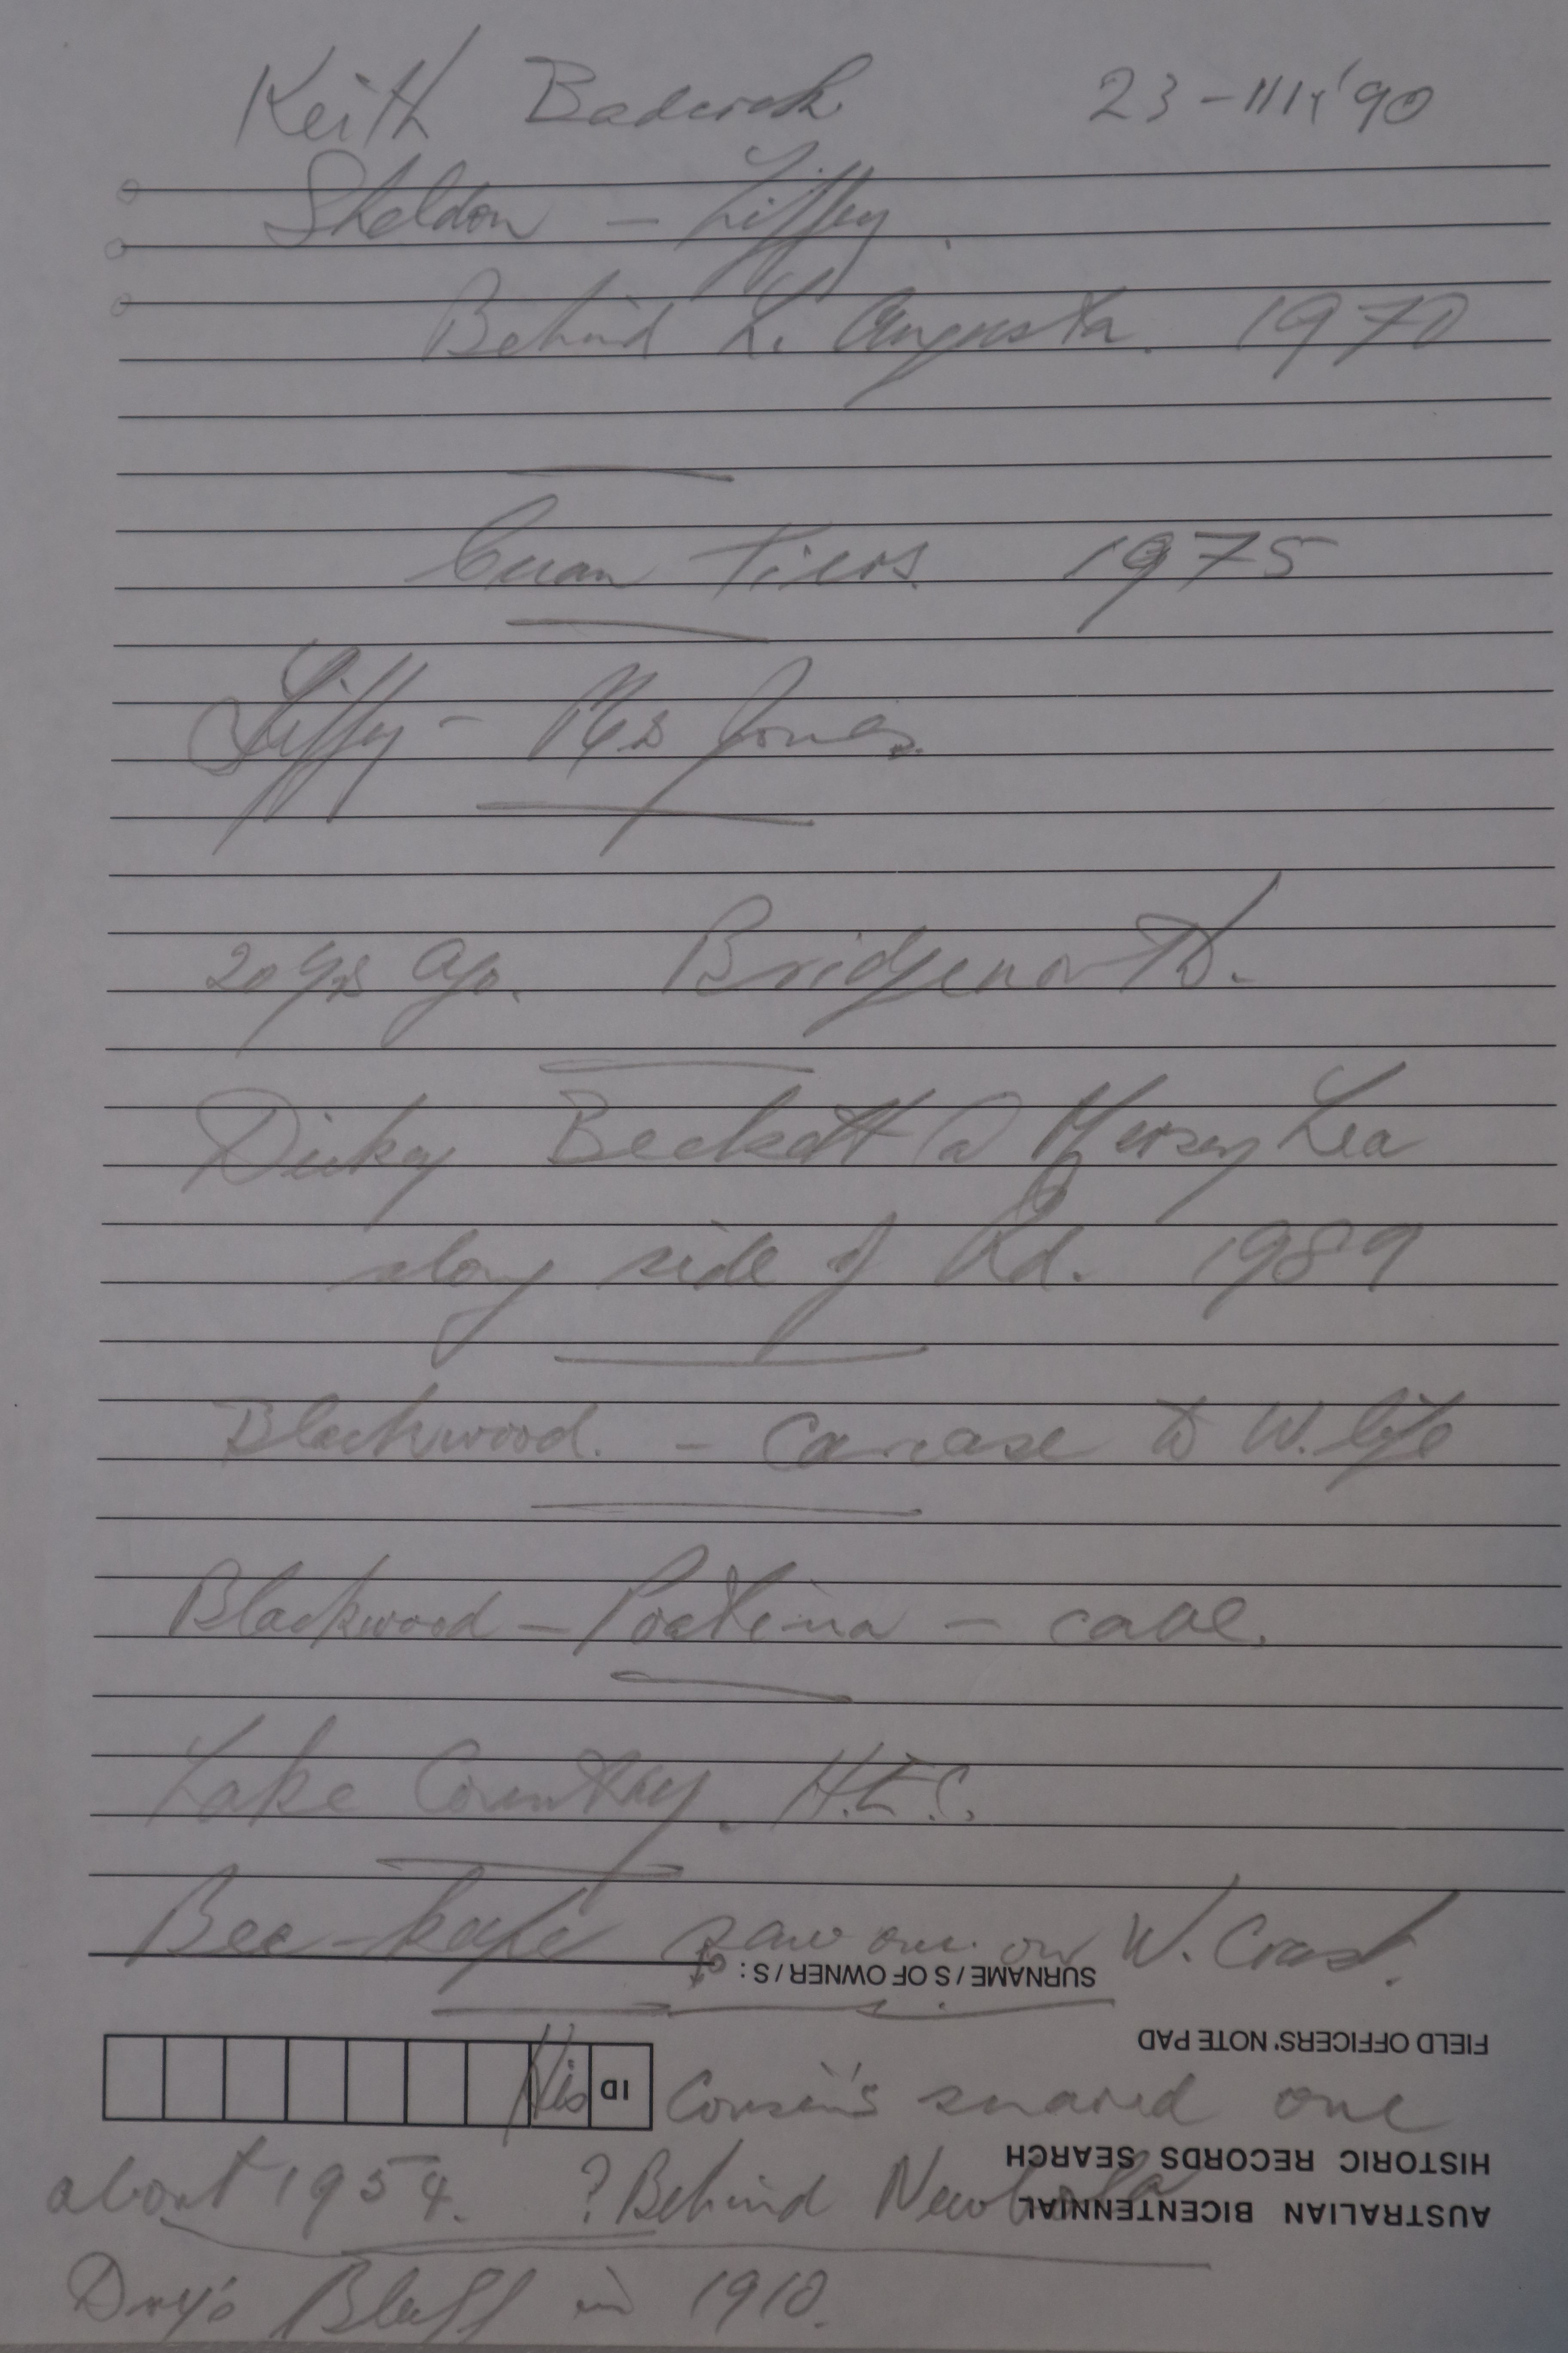 Keith Badcock 23-III-'90
Sheldon - Liffey.
Behind L. Augusta. 1970
Tiers 1975
Liffey - Mrs Jones.
20 yrs ago. Bridgenorth.
Dicky Beckett @ Mersey Lea
along side of Rd. 1989
Blackwood. - Carcase to W. life
Blackwood - Poatina - cave.
Lake Country. H.E.C.
Bee-keeper saw one on W. Coast.
SURNAME/S OF OWNER/S:
FIELD OFFICERS' NOTE PAD
ID
His Cousin's snared one
HISTORIC RECORDS SEARCH
about 1954. ? Behind
AUSTRALIAN BICENTENNIAL
Dry's Bluff in 1910.